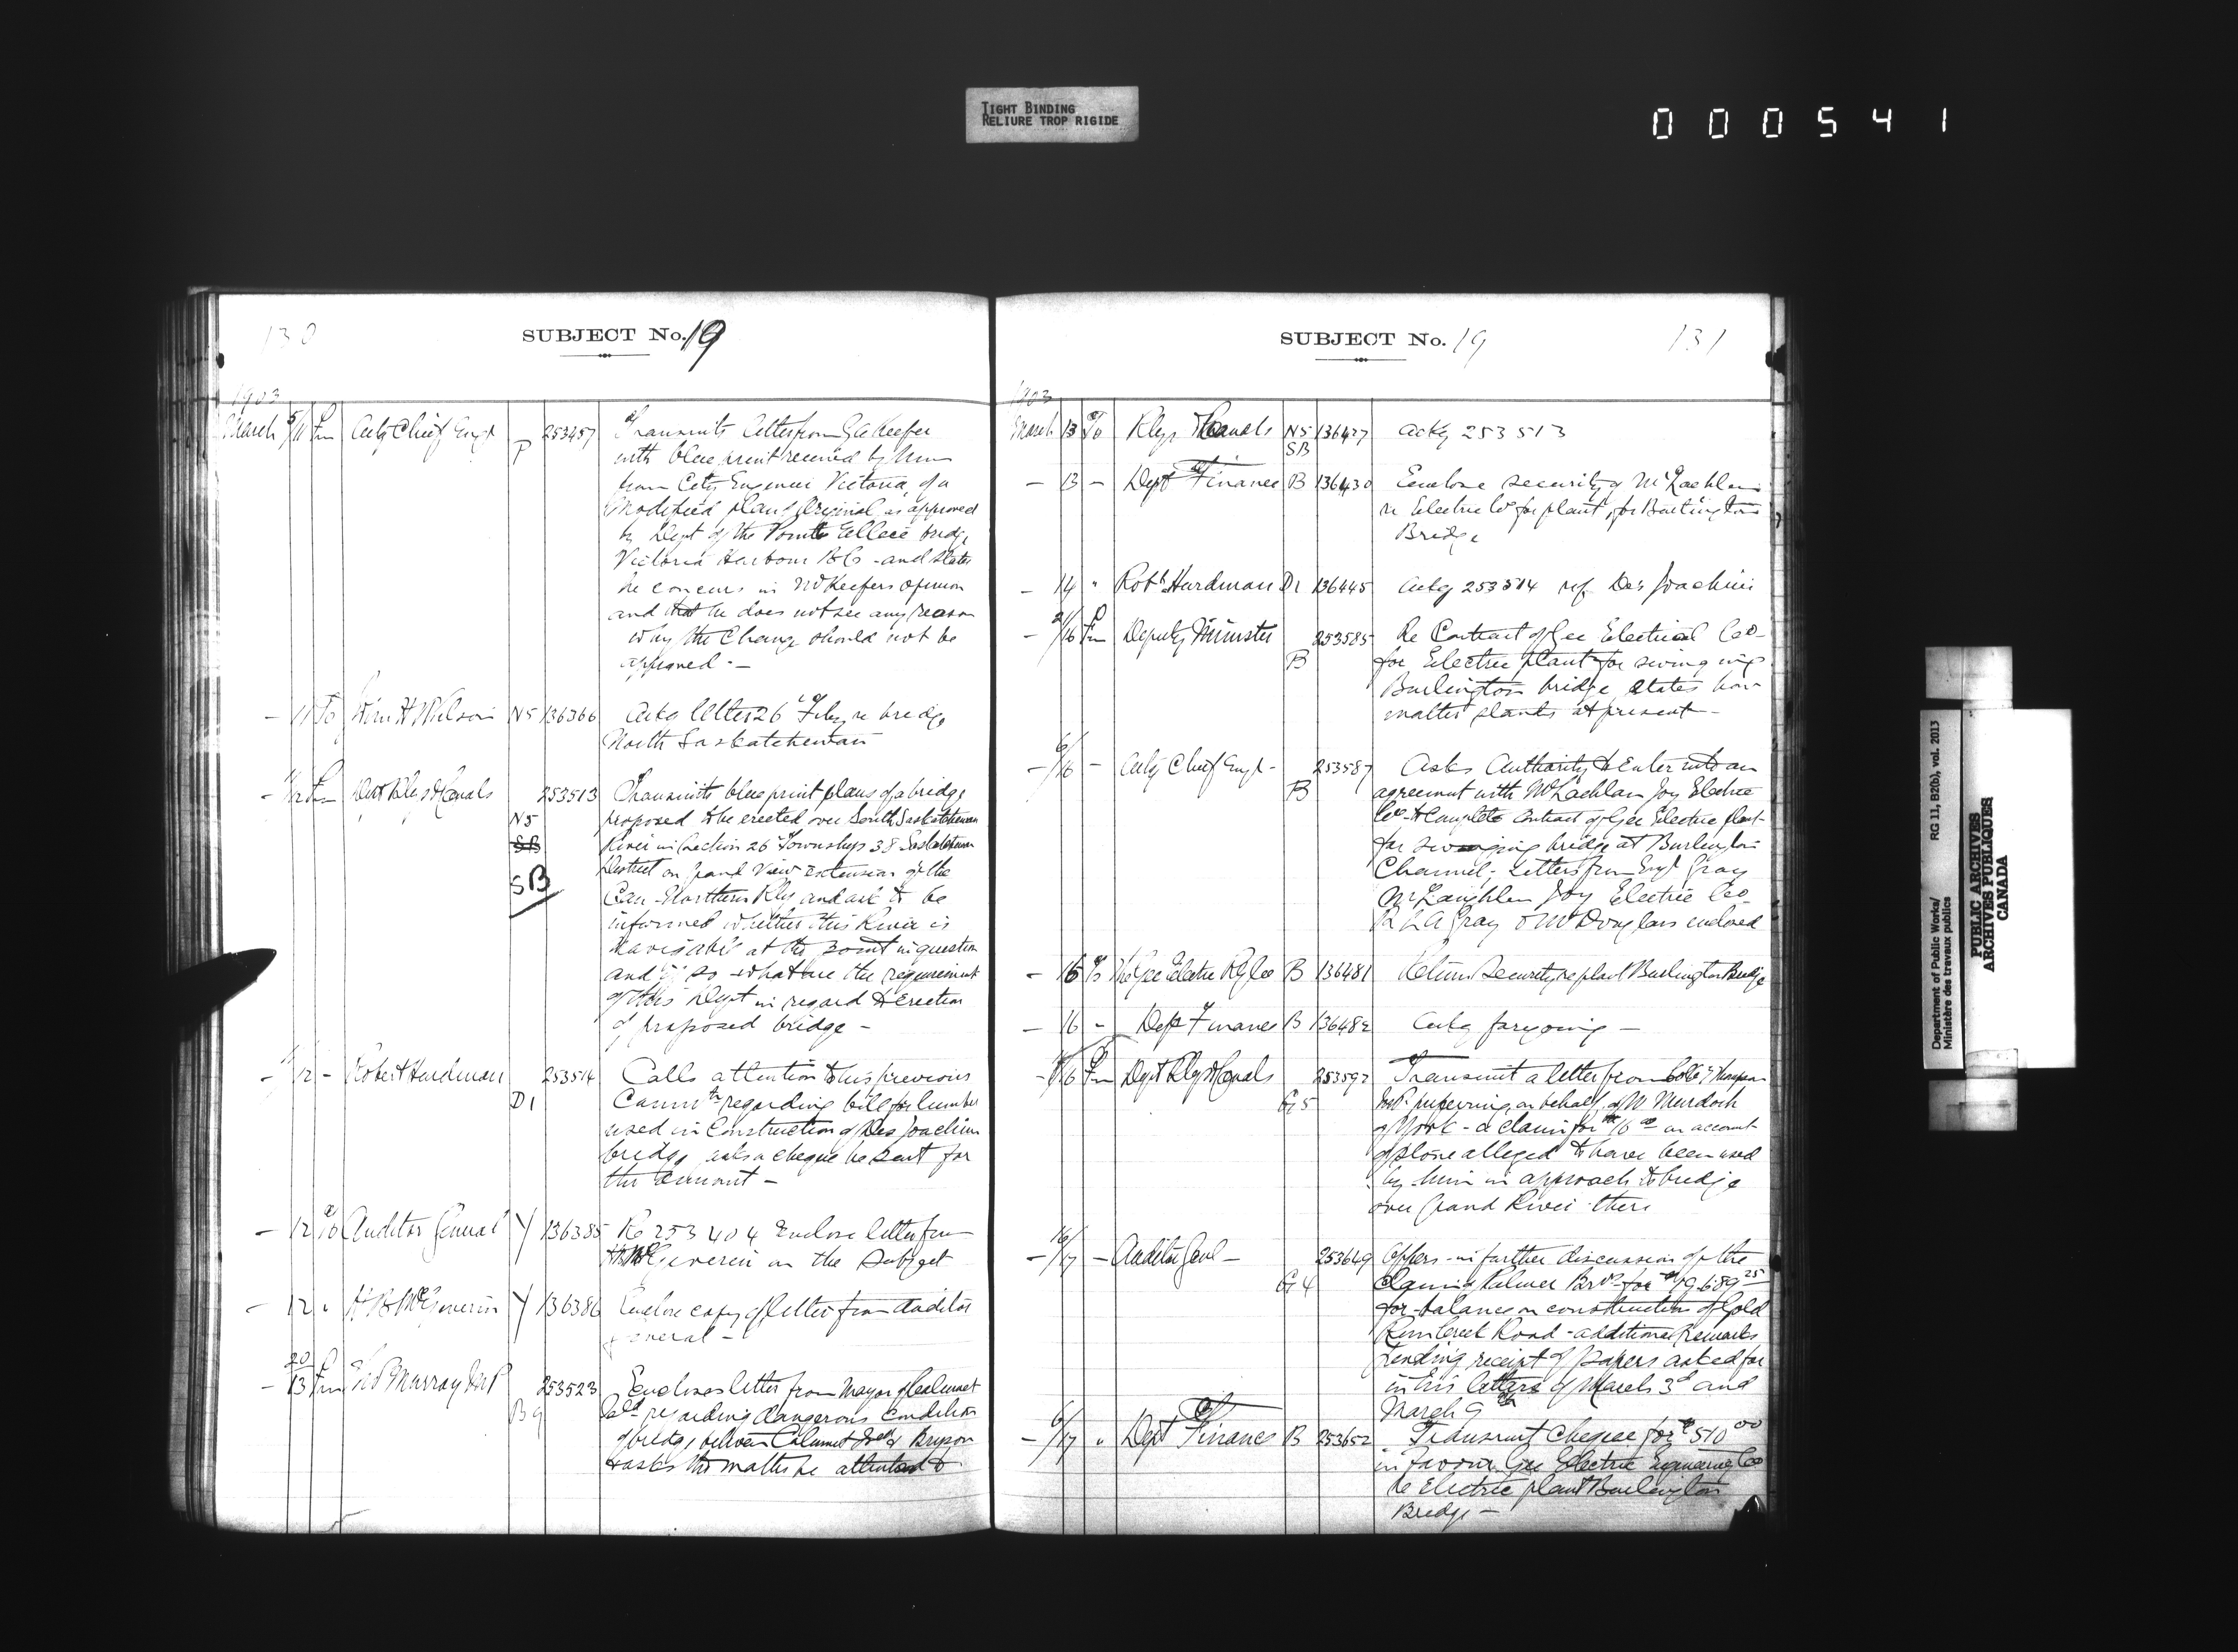 TIGHT BINDING
RELIURE TROP RIGIDE
000541
130
SUBJECT No. 19
1903
March 5/11 Fm Actg Chief Engr P 253457 Transmits letter from G A Keefer
with blue print received by him
from City Engineer Victoria, of a
Modified plan, Original as approved
by Dept of the Pointe Ellice bridge
Victoria Harbour B.C. - and states
he concurs in Mr Keefers opinion
and that he does not see any reason
why the Change should not be
approved -
- 11 To H Wilson N5 136366 Ackg letter 26th Feby re bridge
North Saskatchewan
- 11/12 Fm Dept Rlys & Canals 253513 Transmits blue print plans of a bridge
N5 proposed to be erected over South Saskatchewan
SB River in Section 26 Township 38 Saskatchewan
District on Grand View extension of the
SB
Can. Northern Rly and ask to be
informed whether this River is
navigable at the point in question
and if so what are the requirement
of this Dept in regard to Erection
of proposed bridge -
- 12 - Robert Hurdman 253514 Calls attention to his previous
D1 Commtn regarding bill for lumber
used in Construction of Des Joachim
bridge asks a cheque be sent for
the amount -
- 12 To Auditor General Y 136385 Re 253404 Enclose letter from
McGiverin on the Subject
- 12 " H B McGiverin Y 136386 Enclose copy of letter from Auditor
General -
- 20/13 Fm Murray M.P 253523 Encloses letter from Mayor of Calumet
B9 Isld regarding dangerous condition
of bridge between Calumet Isld & Bryson
& asks the matter be attended to
SUBJECT No. 19
131
1903
March 13 To Rlys & Canals N5 136427 Ackg 253513
SB
- 13 - Dept of Finance B 136430 Enclose security of McLachlan
re Electric Co for plant for Burlington
Bridge
- 14 " Robt Hurdman D1 136445 Ackg 253514 ref. Des Joachims
- 2/16 Fm Deputy Minister 253585 Re Contract of Gee Electrical Co-
B for Electric plant for swinging
Burlington bridge, states how
matter stands at present -
- 6/16 - Actg Chief Engr - 253587 Asks Authority to Enter into an
B agreement with McLachlan Joy Electric
Co to Complete Contract of Gee Electric plant
for swinging bridge at Burlington
Channel; Letters from Engr Gray
McLaughlan Joy Electric Co-
Gray & Mr Douglas enclosed
- 16 To The Gee Electric Co B 136481 Return Security re plant Burlington Bridge
- 16 - Dept Finance B 136482 Ackg foregoing -
- 16 Fm Dept Rlys & Canals 253592 Transmit a letter from Thompson
G5 M.P. preferring, on behalf of W. Murdoch
of York - a claim for $16 00 on account
of stone alleged to have been used
by him in approach to bridge
over Grand River there
- 16/17 - Auditor Genl - 253649 Offers - in further discussion of the
G4 Claim of Palmer Bros for $19,689 25
for balance on construction of Gold
Run Creek Road - additional Remarks
pending receipt of papers asked for
in his letters of March 3d and
March 9th
- 6/17 " Dept of Finance B 253652 Transmit Cheque for $510 00
in favour Gee Electric Engineering Co
re Electric plant Burlington
Bridge -
Department of Public Works/ RG 11, B2(b), vol. 2013
Ministère des travaux publics
PUBLIC ARCHIVES
ARCHIVES PUBLIQUES
CANADA